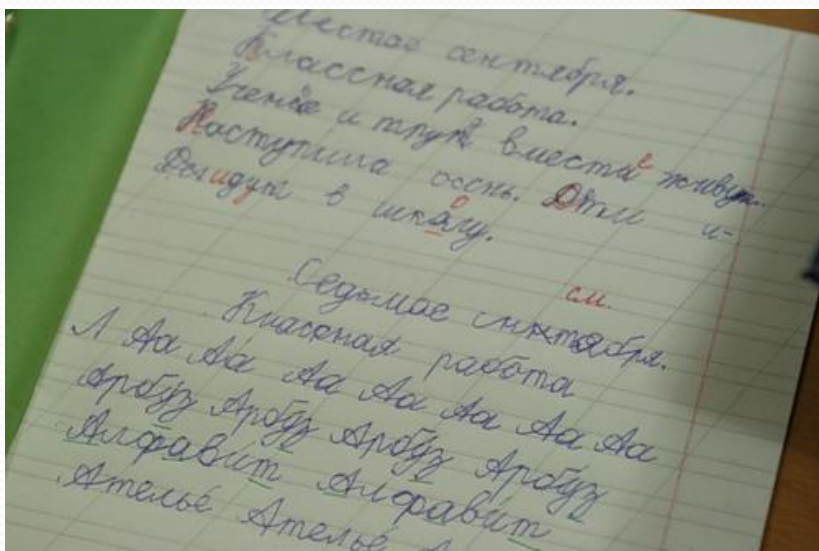 Шестое сентября.
Классная работа.
Ученёе и труд вместе живут.
Наступила осень. Дети и-
идут в школу.
см.
Седьмое сентября.
Классная работа
Л Аа Аа Аа Аа Аа Аа Аа
Арбуз Арбуз Арбуз Арбуз
Алфавит Алфавит
Ателье Ателье